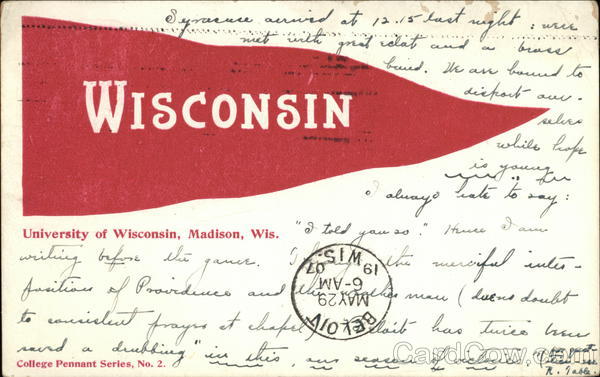 Syracuse arrived at 12.15 last night : were
met with great eclat and a brass
band. We are bound to
disport our-
selves
while hope
is young
I always hate to say:
"I told you so." Hence I am
writing before the game. I the merciful inter-
positions of Providence and the other man (due no doubt
to consistent prayers at chapel) Beloit has twice been
saved a drubbing in this our season of
K. Table.
WISCONSIN
University of Wisconsin, Madison, Wis.
College Pennant Series, No. 2.
BELOIT
MAY 29
6-AM
1907
WIS.
CardCow.com